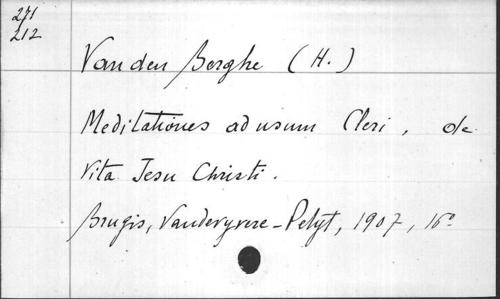 271
212
Van den Berghe (H.)
Meditationes ad usum Cleri, de
Vita Jesu Christi.
Brugis, Vandevyvere-Petyt, 1907, 16º